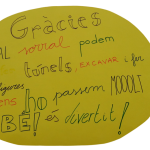 Gràcies
AL sorral podem
túnels, EXCAVAR i fer
figures
ens ho passem MOOOLT
BÉ! és divertit!